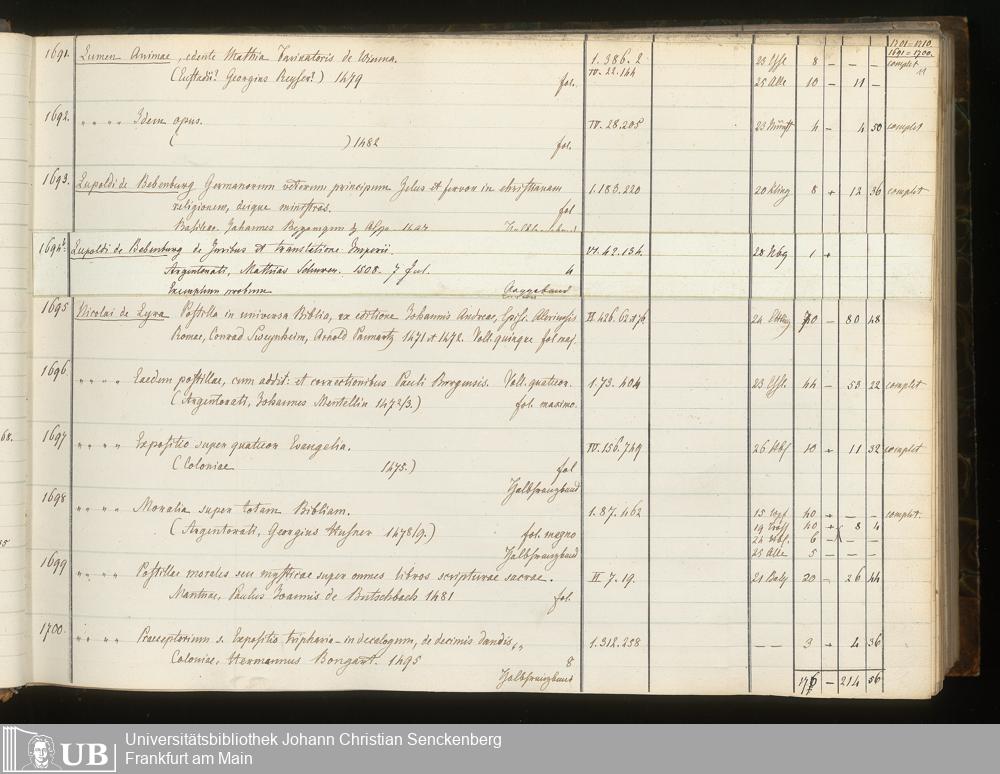 1701=1710.
1691=1700.
1691. Lumen Animae, edente Mathia Farinatoris de Wienna. 1.386.2 23 8 — — — complet
(Eustadii? Georgius Reyser?) 1479 fol. IV. 22.144 25 Alle 10 — 11 —
1692. " " " " Idem opus. IV. 28.205 23 4 — 4 50 complet
( ) 1482 fol.
1693. Lupoldi de Bebenburg Germanorum veterum principum Zelus et fervor in christianam 1.183.220 20 Kling 8 + 12 36 complet
religionem, deique ministros. fol
Basileae. Johannes Bergmann de Olpe. 1497
1694. Lupoldi de Bebenburg de Juribus et translatione Imperii. VI. 42.134. 28 Nbg 1 +
Argentorati, Mathias Schurer. 1508. 7 Jul. 4
Exemplum
1695 Nicolai de Lyra Postilla in universa Biblia, ex editione Johannis Andreae, Episc. Aleriensis 24 — 80 48
Romae, Conrad Sweynheim, Arnold Pannartz 1471 et 1472. Voll. quinque fol maj.
1696. " " " " Eaedem postillae, cum addit: et correctionibus Pauli Burgensis. Voll. quatuor. 1.73.404 23 44 — 53 22 complet
(Argentorati, Johannes Mentellin 1472/3.) fol. maximo.
1697 " " " " Expositio super quatuor Evangelia. IV. 156.749 26 10 + 11 32 complet
(Coloniae 1475.) fol
Halbfranzband
1698 " " " " Moralia super totam Bibliam. 1.87.462 15 40 + — — complet.
(Argentorati, Georgius Husner 1478/9.) fol. magno 19 40 + 8 4
24 6 — — —
Halbfranzband 25 Alle 5 — — —
1699 " " " " Postillae morales seu mysticae super omnes libros scripturae sacrae. II. 7.19. 21 20 — 26 44
Mantuae, Paulus Joannis de Butschbach 1481 fol.
1700. " " " " Praeceptorium s. Expositio triphania in decalogum, de decimis dandis, 1.312.258 — — 3 + 4 36
Coloniae, Hermannus Bongart. 1495 8
Halbfranzband 176 — 214 56
68.
UB
Universitätsbibliothek Johann Christian Senckenberg
Frankfurt am Main